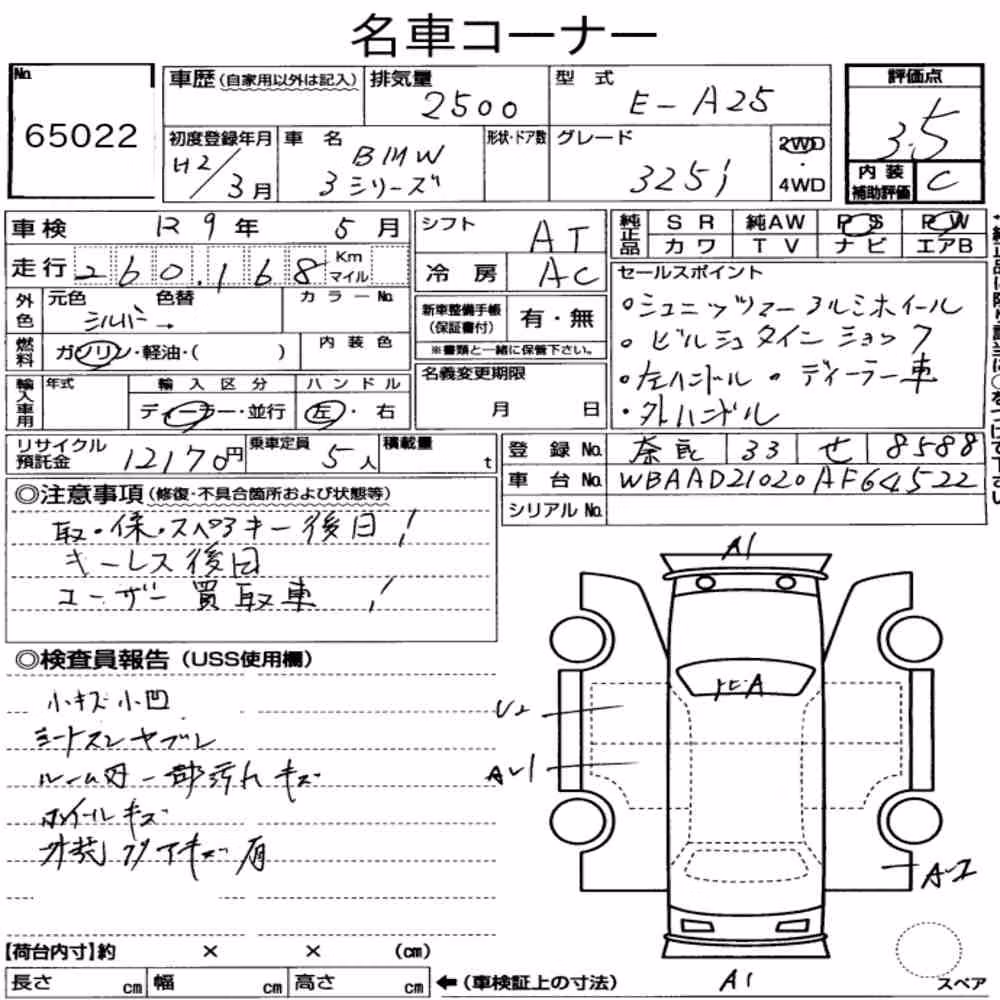 名車コーナー
No. 65022
車歴(自家用以外は記入) 排気量 2500 型式 E-A25
初度登録年月 H2/3月 車名 BMW 3シリーズ 形状・ドア数 グレード 325i 2WD・4WD
評価点 3.5
内装補助評価 C
車検 R9年 5月
走行 260,168 Km マイル
外色 元色 シルバー → 色替 カラーNo.
燃料 ガソリン・軽油・( ) 内装色
輸入車用 年式 輸入区分 ディーラー・並行 ハンドル 左・右
リサイクル預託金 12170円 乗車定員 5人 積載量 t
シフト AT
冷房 AC
新車整備手帳(保証書付) 有・無
※書類と一緒に保管下さい。
名義変更期限 月 日
純正品 SR 純AW PS PW
カワ TV ナビ エアB
セールスポイント
・シュニッツァーアルミホイール
・ビルシュタインショック
・左ハンドル ・ディーラー車
・外ハンドル
登録No. 奈良 33 せ 8588
車台No. WBAAD21020AF64522
シリアルNo.
◎注意事項(修復・不具合箇所および状態等)
取・保・スペアキー後日!
キーレス後日
ユーザー買取車!
◎検査員報告(USS使用欄)
小キズ小凹
シートスレヤブレ
ルーム内一部汚れキズ
ホイールキズ
外装クリアキズ有
A1
U2
A1
スペア
【荷台内寸】約 × × (cm)
長さ cm 幅 cm 高さ cm ←(車検証上の寸法)